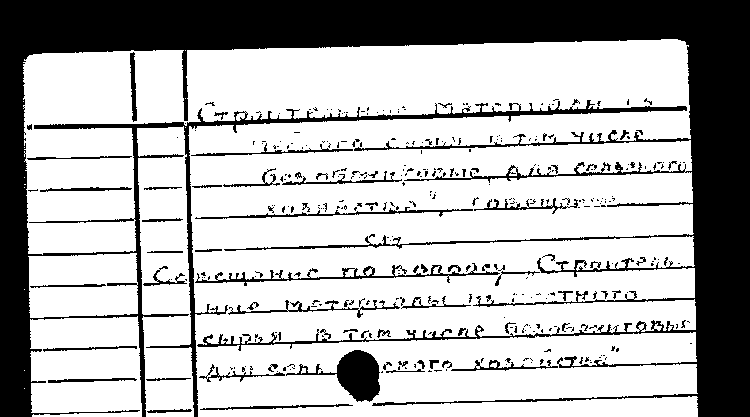 „Строительные материалы из
сырья, в том числе
безобжиговые, для сельского
хозяйства", совещание
см
Совещание по вопросу „Строитель-
ные материалы из местного
сырья, в том числе безобжиговые
для сель ского хозяйства"